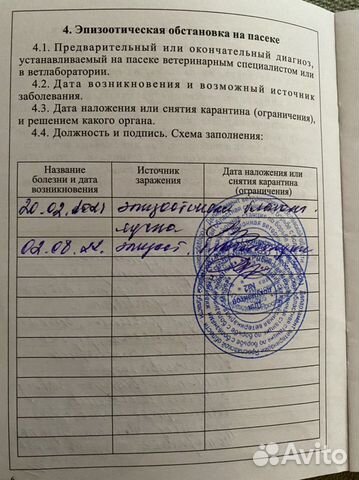 4. Эпизоотическая обстановка на пасеке
4.1. Предварительный или окончательный диагноз,
устанавливаемый на пасеке ветеринарным специалистом или
в ветлаборатории.
4.2. Дата возникновения и возможный источник
заболевания.
4.3. Дата наложения или снятия карантина (ограничения),
и решением какого органа.
4.4. Должность и подпись. Схема заполнения:
Название болезни и дата возникновения
Источник заражения
Дата наложения или снятия карантина (ограничения)
20.02.2021
02.08.22. эпизоот.
6
Avito